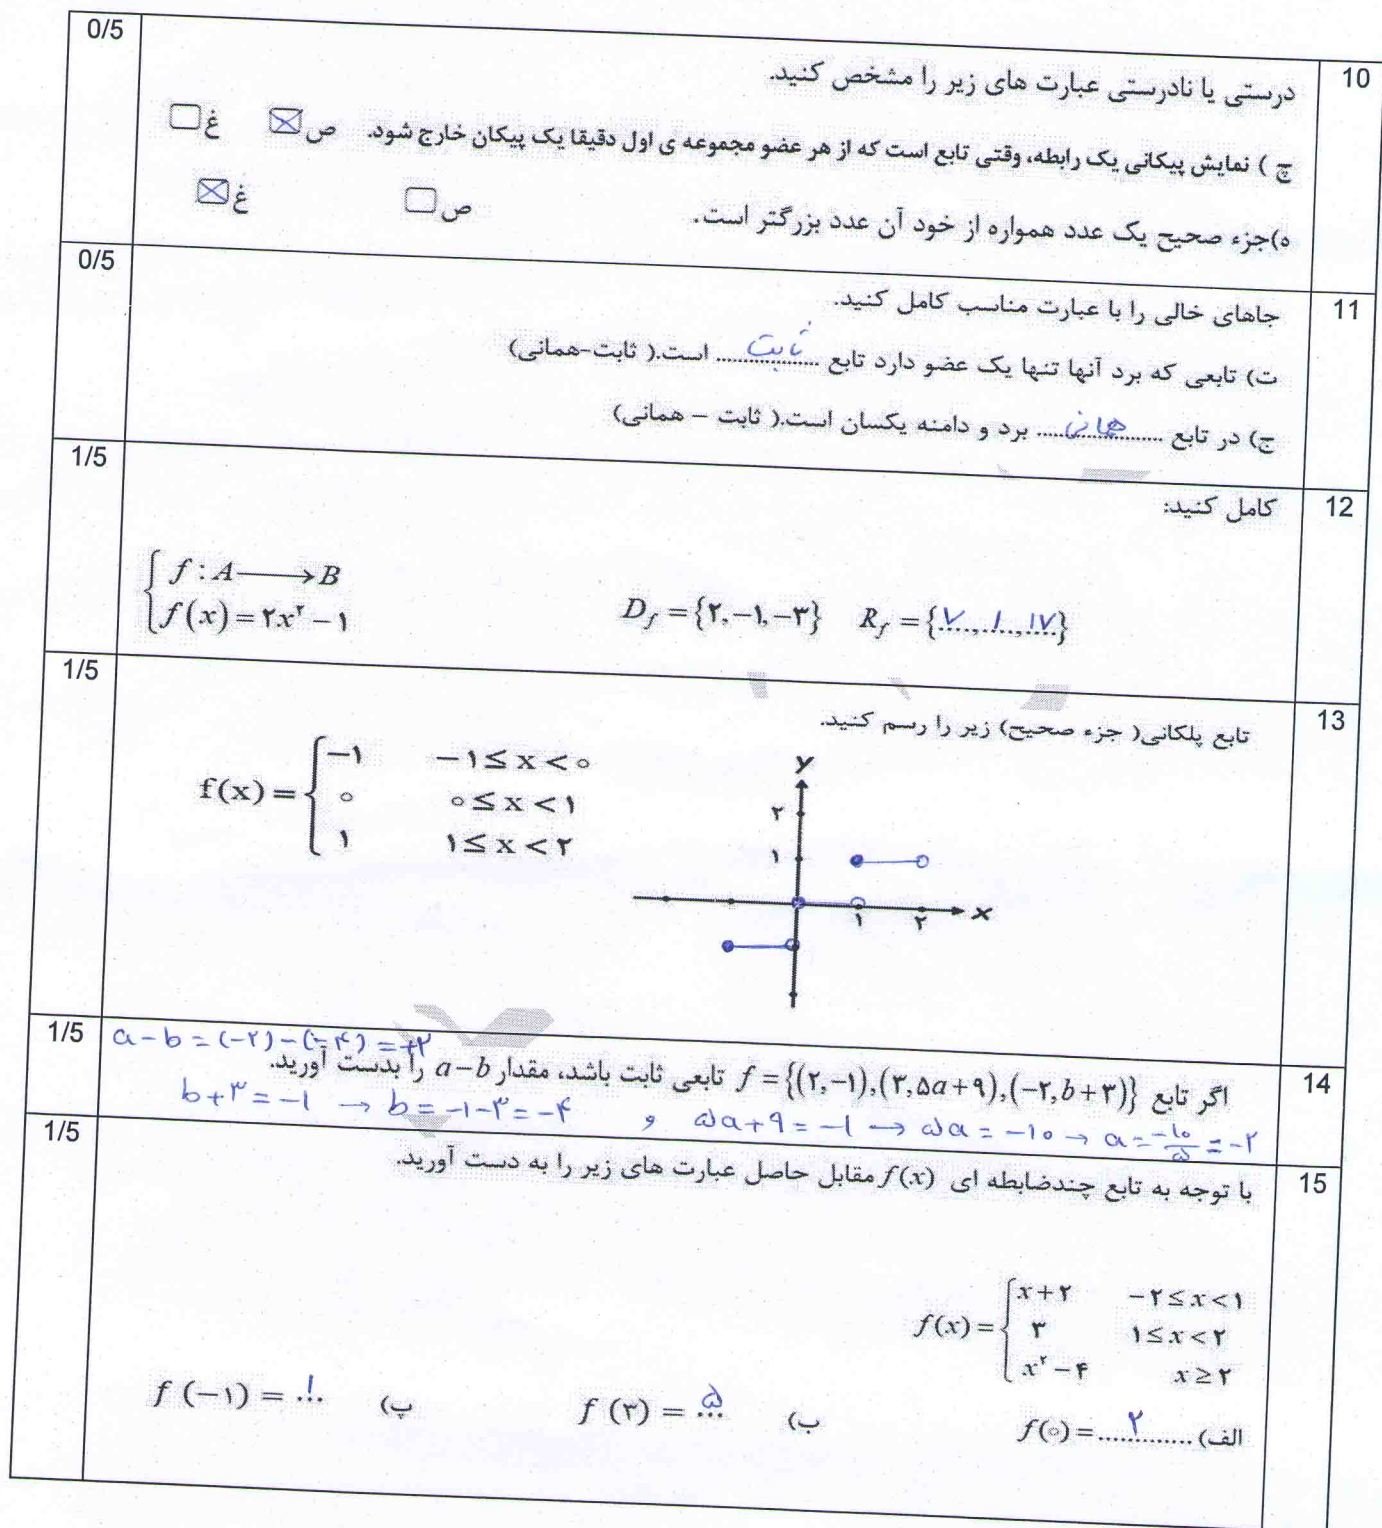 10
درستی یا نادرستی عبارت های زیر را مشخص کنید.
0/5
چ ) نمایش پیکانی یک رابطه، وقتی تابع است که از هر عضو مجموعه ی اول دقیقا یک پیکان خارج شود. ص ☒ غ ☐
ه)جزء صحیح یک عدد همواره از خود آن عدد بزرگتر است. ص ☐ غ ☒
11
جاهای خالی را با عبارت مناسب کامل کنید.
0/5
ت) تابعی که برد آنها تنها یک عضو دارد تابع ثابت است.( ثابت-همانی)
ج) در تابع همانی برد و دامنه یکسان است.( ثابت – همانی)
12
کامل کنید:
1/5
f : A ⟶ B
f(x) = ۲x^۲ − ۱
D_f = {۲, −۱, −۳} R_f = {۷, ۱, ۱۷}
13
تابع پلکانی( جزء صحیح) زیر را رسم کنید.
1/5
f(x) = { −۱ −۱ ≤ x < ۰
۰ ۰ ≤ x < ۱
۱ ۱ ≤ x < ۲
y
۲
۱
۱ ۲ x
14
1/5
a − b = (−۲) − (−۴) = +۲
اگر تابع f = {(۲, −۱), (۳, ۵a + ۹), (−۲, b + ۳)} تابعی ثابت باشد، مقدار a − b را بدست آورید.
b + ۳ = −۱ → b = −۱ − ۳ = −۴ و ۵a + ۹ = −۱ → ۵a = −۱۰ → a = −۱۰/۵ = −۲
15
1/5
با توجه به تابع چندضابطه ای f(x) مقابل حاصل عبارت های زیر را به دست آورید.
f(x) = { x + ۲ −۲ ≤ x < ۱
۳ ۱ ≤ x < ۲
x^۲ − ۴ x ≥ ۲
الف) f(۰) = ۲ ب) f (۳) = ۵ پ) f (−۱) = ۱